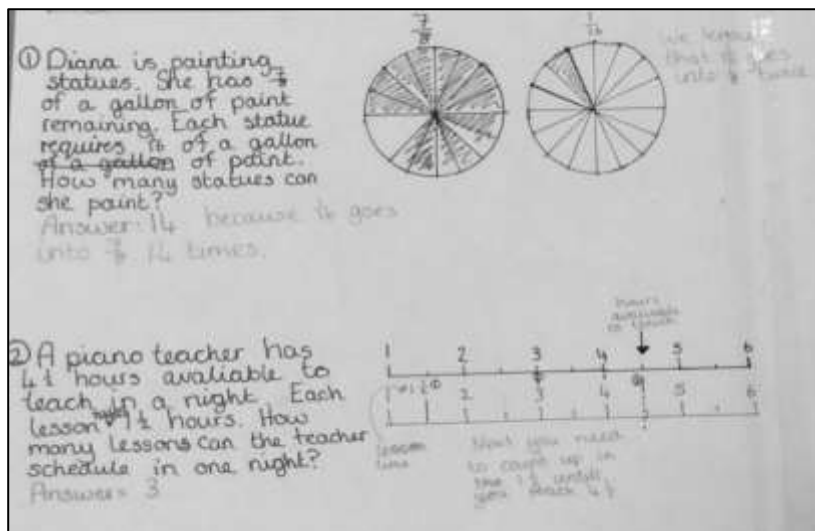 ① Diana is painting
statues. She has 7/8
of a gallon of paint
remaining. Each statue
requires 1/16 of a gallon
of a gallon of paint.
How many statues can
she paint?
Answer: 14 because 1/16 goes
into 7/8 14 times.
7/8
1/16
We know
that 1/16 goes
into 1/8 twice
② A piano teacher has
4 1/2 hours avaliable to
teach in a night. Each
lesson 1 1/2 hours. How
many lessons can the teacher
schedule in one night?
Answer= 3
hours
available
to teach
1 2 3 4 5 6
1 2 3 4 5 6
lesson
time
you need
to count up in
the 1 1/2 untill
you reach 4 1/2